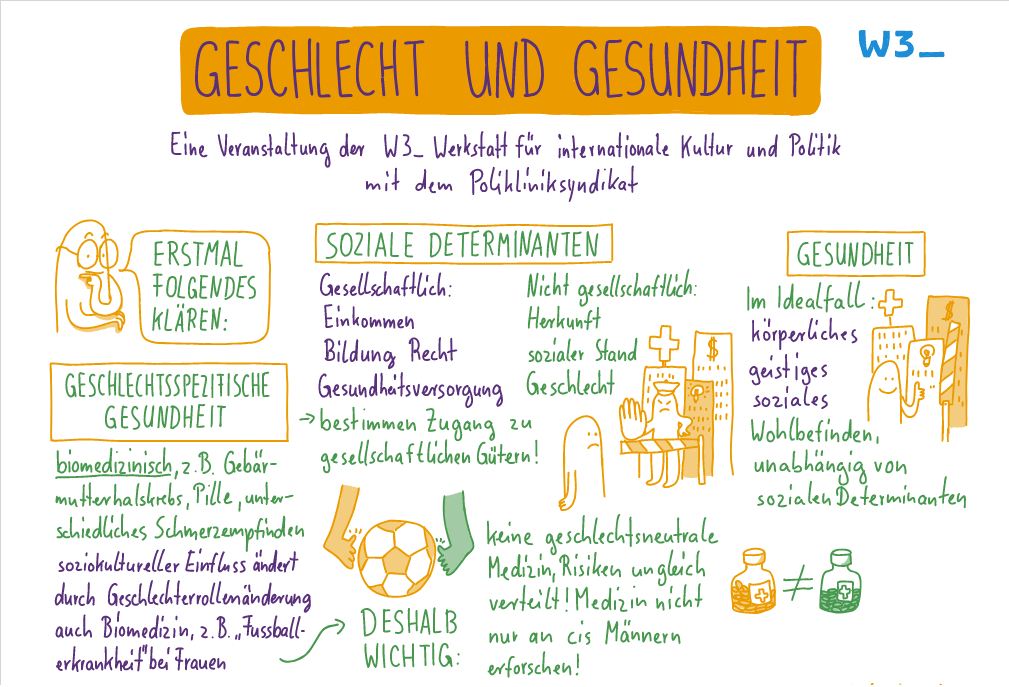 GESCHLECHT UND GESUNDHEIT
W3_
Eine Veranstaltung der W3_ Werkstatt für internationale Kultur und Politik
mit dem Polikliniksyndikat
ERSTMAL
FOLGENDES
KLÄREN:
GESCHLECHTSSPEZITISCHE
GESUNDHEIT
biomedizinisch, z.B. Gebär-
mutterhalskrebs, Pille, unter-
schiedliches Schmerzempfinden
soziokultureller Einfluss ändert
durch Geschlechterrollenänderung
auch Biomedizin, z.B. „Fussball-
erkrankheit" bei Frauen
SOZIALE DETERMINANTEN
Gesellschaftlich:
Einkommen
Bildung Recht
Gesundheitsversorgung
Nicht gesellschaftlich:
Herkunft
sozialer Stand
Geschlecht
→ bestimmen Zugang zu
gesellschaftlichen Gütern!
$
DESHALB
WICHTIG:
keine geschlechtsneutrale
Medizin, Risiken ungleich
verteilt! Medizin nicht
nur an cis Männern
erforschen!
GESUNDHEIT
Im Idealfall:
körperliches
geistiges
soziales
Wohlbefinden,
unabhängig von
sozialen Determinanten
$
≠